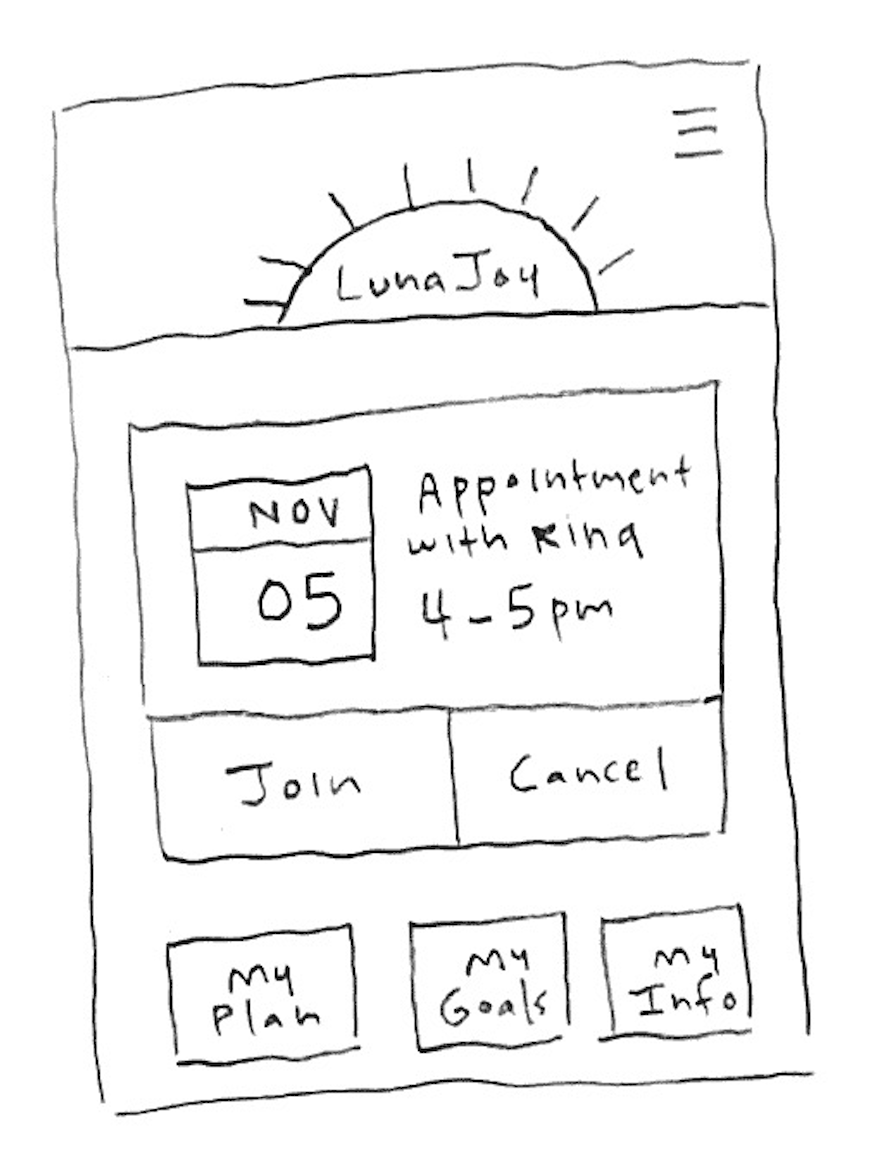 Luna Joy
NOV
05
Appointment
with King
4-5pm
Join
Cancel
My
Plan
My
Goals
My
Info